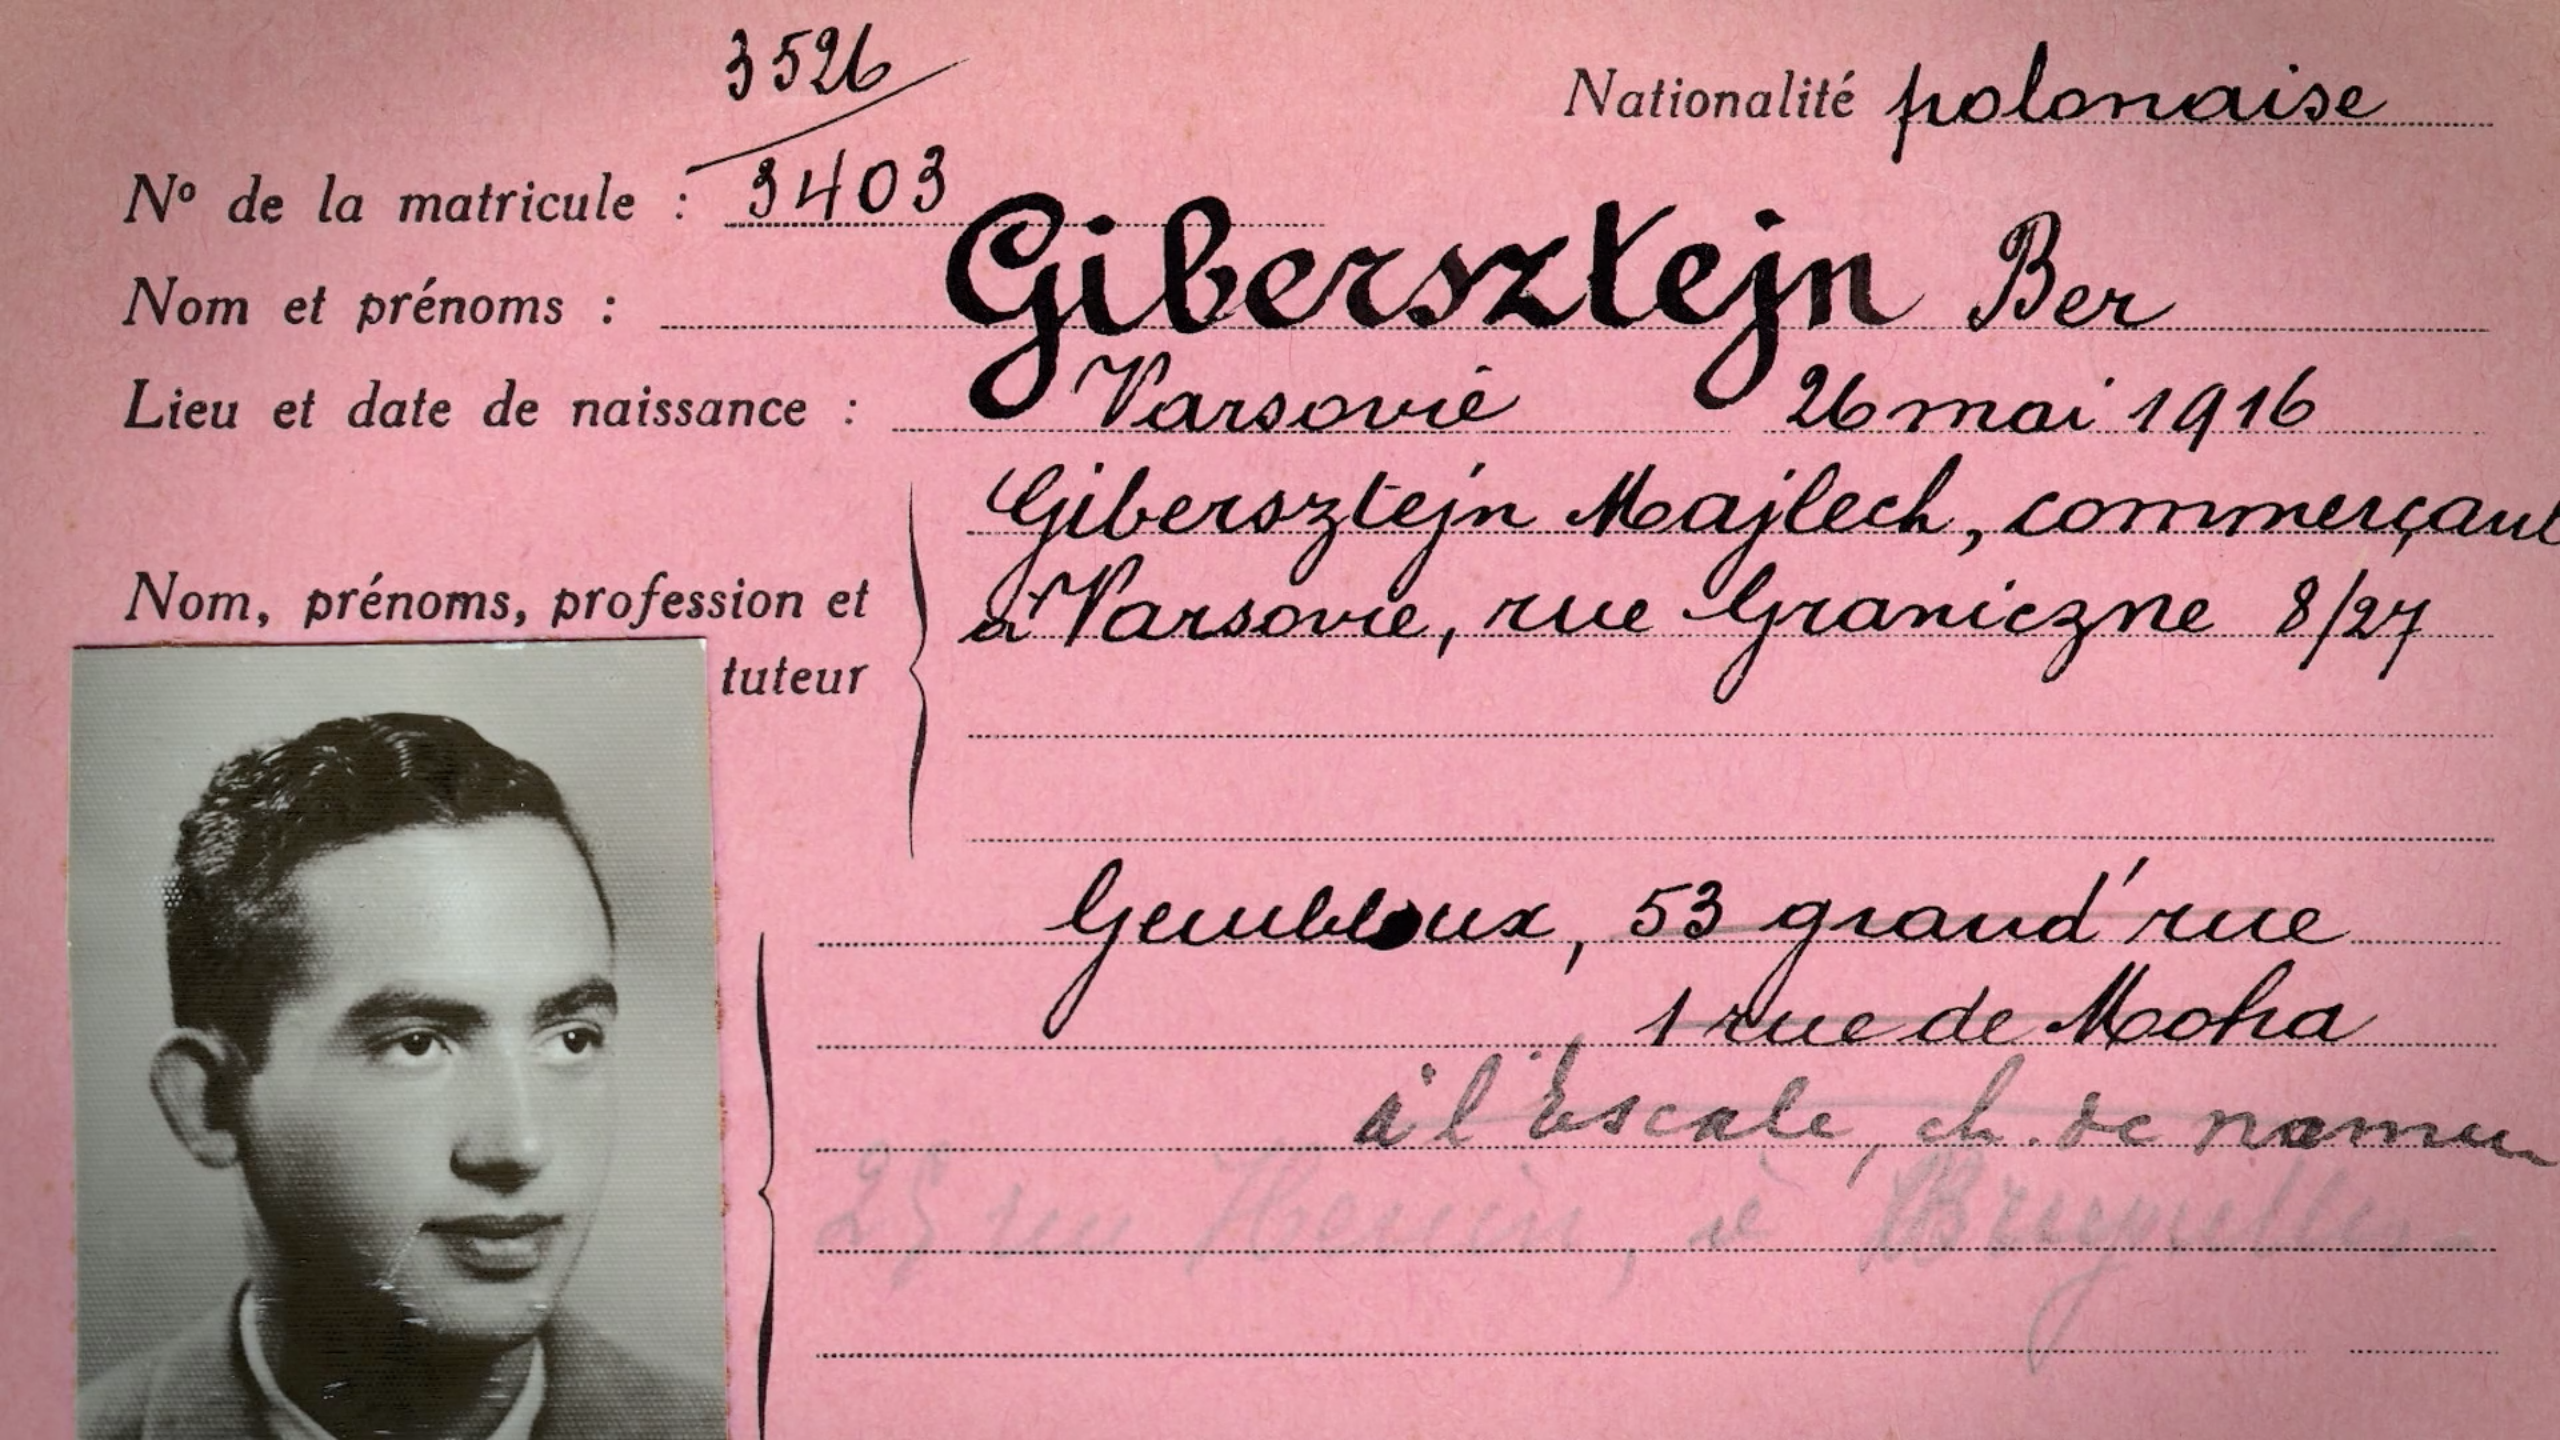 3526
Nationalité polonaise
Nº de la matricule : 3403
Nom et prénoms : Gibersztejn Ber
Lieu et date de naissance : Varsovie 26 mai 1916
Gibersztejn Majlech, commerçant
Nom, prénoms, profession et à Varsovie, rue Graniczne 8/27
tuteur
Gembloux, 53 grand'rue
1 rue de Moha
à l'Escale, ch. de namur
25 rue à Bruxelles